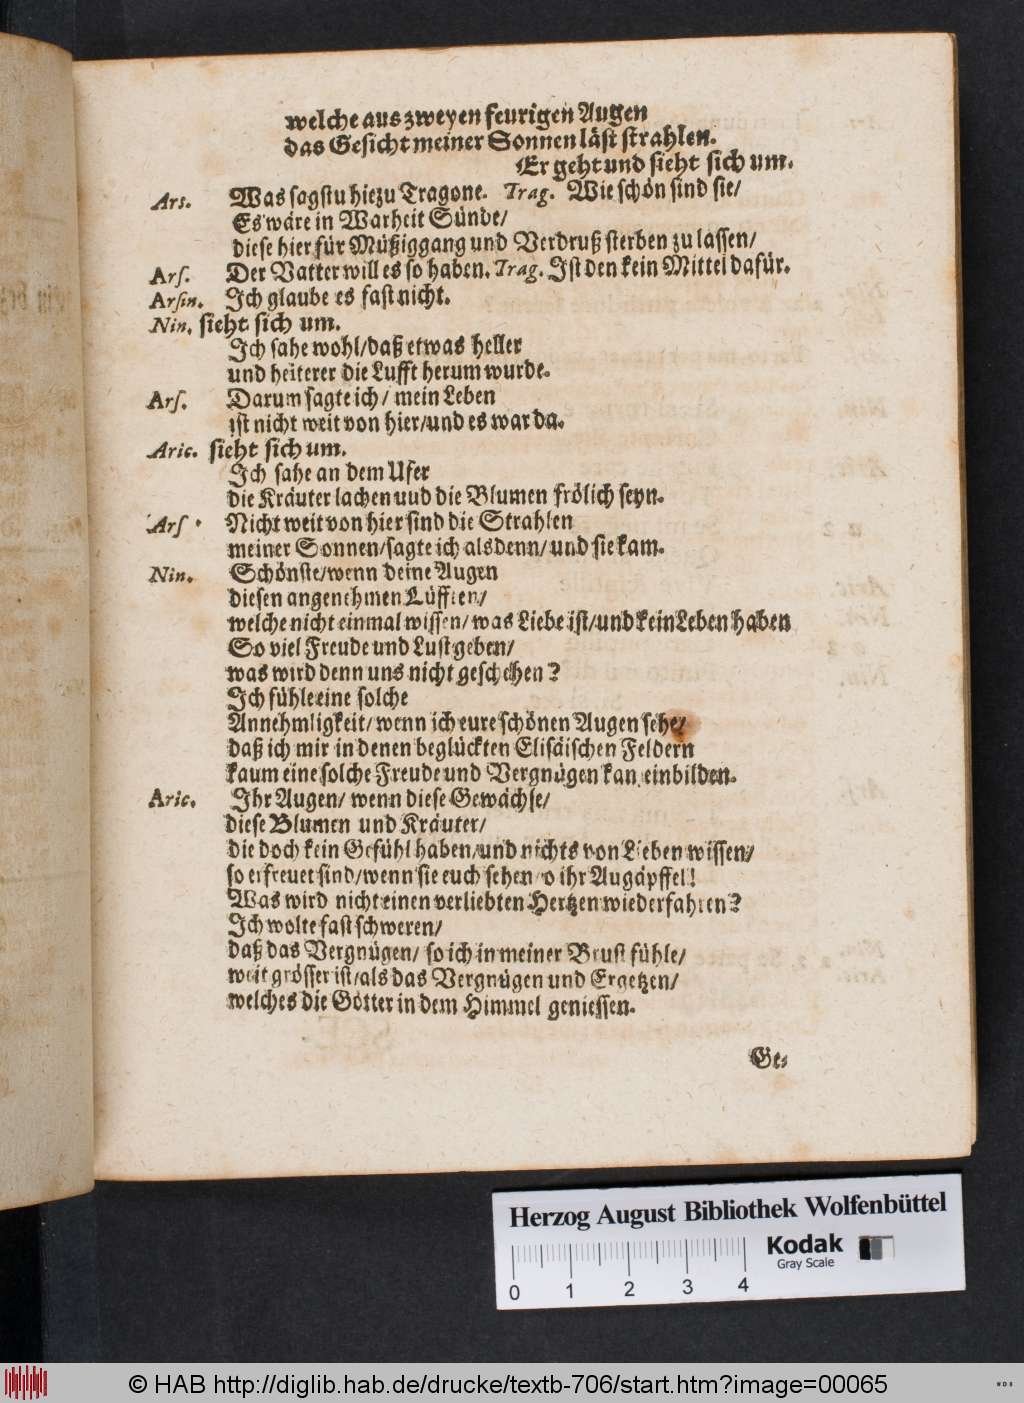 welche aus zweyen feurigen Augen
das Gesicht meiner Sonnen läst strahlen.
Er geht und sieht sich um.
Ars. Was sagstu hiezu Tragone. Trag. Wie schön sind sie/
Es wäre in Warheit Sünde/
diese hier für Müßiggang und Verdruß sterben zu lassen/
Arſ. Der Vatter will es so haben. Trag. Ist den kein Mittel dafür.
Arſin. Ich glaube es fast nicht.
Nin. sieht sich um.
Ich sahe wohl/daß etwas heller
und heiterer die Lufft herum wurde.
Arſ. Darum sagte ich/ mein Leben
ist nicht weit von hier/und es war da.
Aric. sieht sich um.
Ich sahe an dem Ufer
die Kräuter lachen uud die Blumen frölich seyn.
Arſ Nicht weit von hier sind die Strahlen
meiner Sonnen/sagte ich alsdenn/ und sie kam.
Nin. Schönste/wenn deine Augen
diesen angenehmen Lüfften/
welche nicht einmal wissen/ was Liebe ist/und kein Leben haben
So viel Freude und Lust geben/
was wird denn uns nicht geschehen?
Ich fühle eine solche
Annehmligkeit/ wenn ich eure schönen Augen sehe/
daß ich mir in denen beglückten Elisäischen Feldern
kaum eine solche Freude und Vergnügen kan einbilden.
Aric. Ihr Augen/ wenn diese Gewächse/
diese Blumen und Kräuter/
die doch kein Gefühl haben/und nichts von Lieben wissen/
so erfreuet sind/wenn sie euch sehen/o ihr Augäpffel!
Was wird nicht einen verliebten Hertzen wiederfahren?
Ich wolte fast schweren/
daß das Vergnügen/ so ich in meiner Brust fühle/
weit grösser ist/als das Vergnügen und Ergetzen/
welches die Götter in dem Himmel geniessen.
Ge-
Herzog August Bibliothek Wolfenbüttel
Kodak
Gray Scale
0 1 2 3 4
© HAB http://diglib.hab.de/drucke/textb-706/start.htm?image=00065